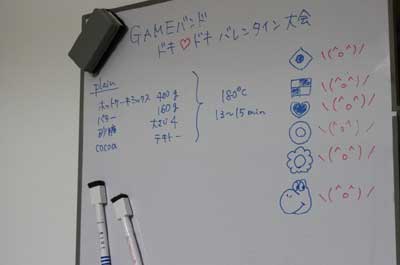 GAMEバンド
ドキ♡ドキ バレンタイン大会
plain
ホットケーキミックス 400g
バター 160g
砂糖 大さじ4
cocoa テキトー
180℃
13〜15min
\(^o^)/
\(^o^)/
\(^o^)/
\(^o^)/
\(^o^)/
\(^o^)/